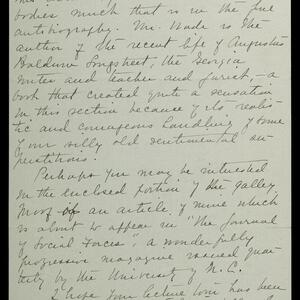 bodies much that is in the fine
autobiography. Mr. Wade is the
author of the recent life of Augustus
Baldwin Longstreet, the Georgia
writer and teacher and jurist, – a
book that created quite a sensation
in this section because of its realis-
tic and courageous handling of some
of our silly old sentimental su-
perstitions.
Perhaps you may be interested
in the enclosed portion of the galley
proof of an article of mine which
is about to appear in "The Journal
of Social Forces", a wonderfully
progressive magazine issued quar-
terly by the University of N. C.
I hope your lecture tour has been